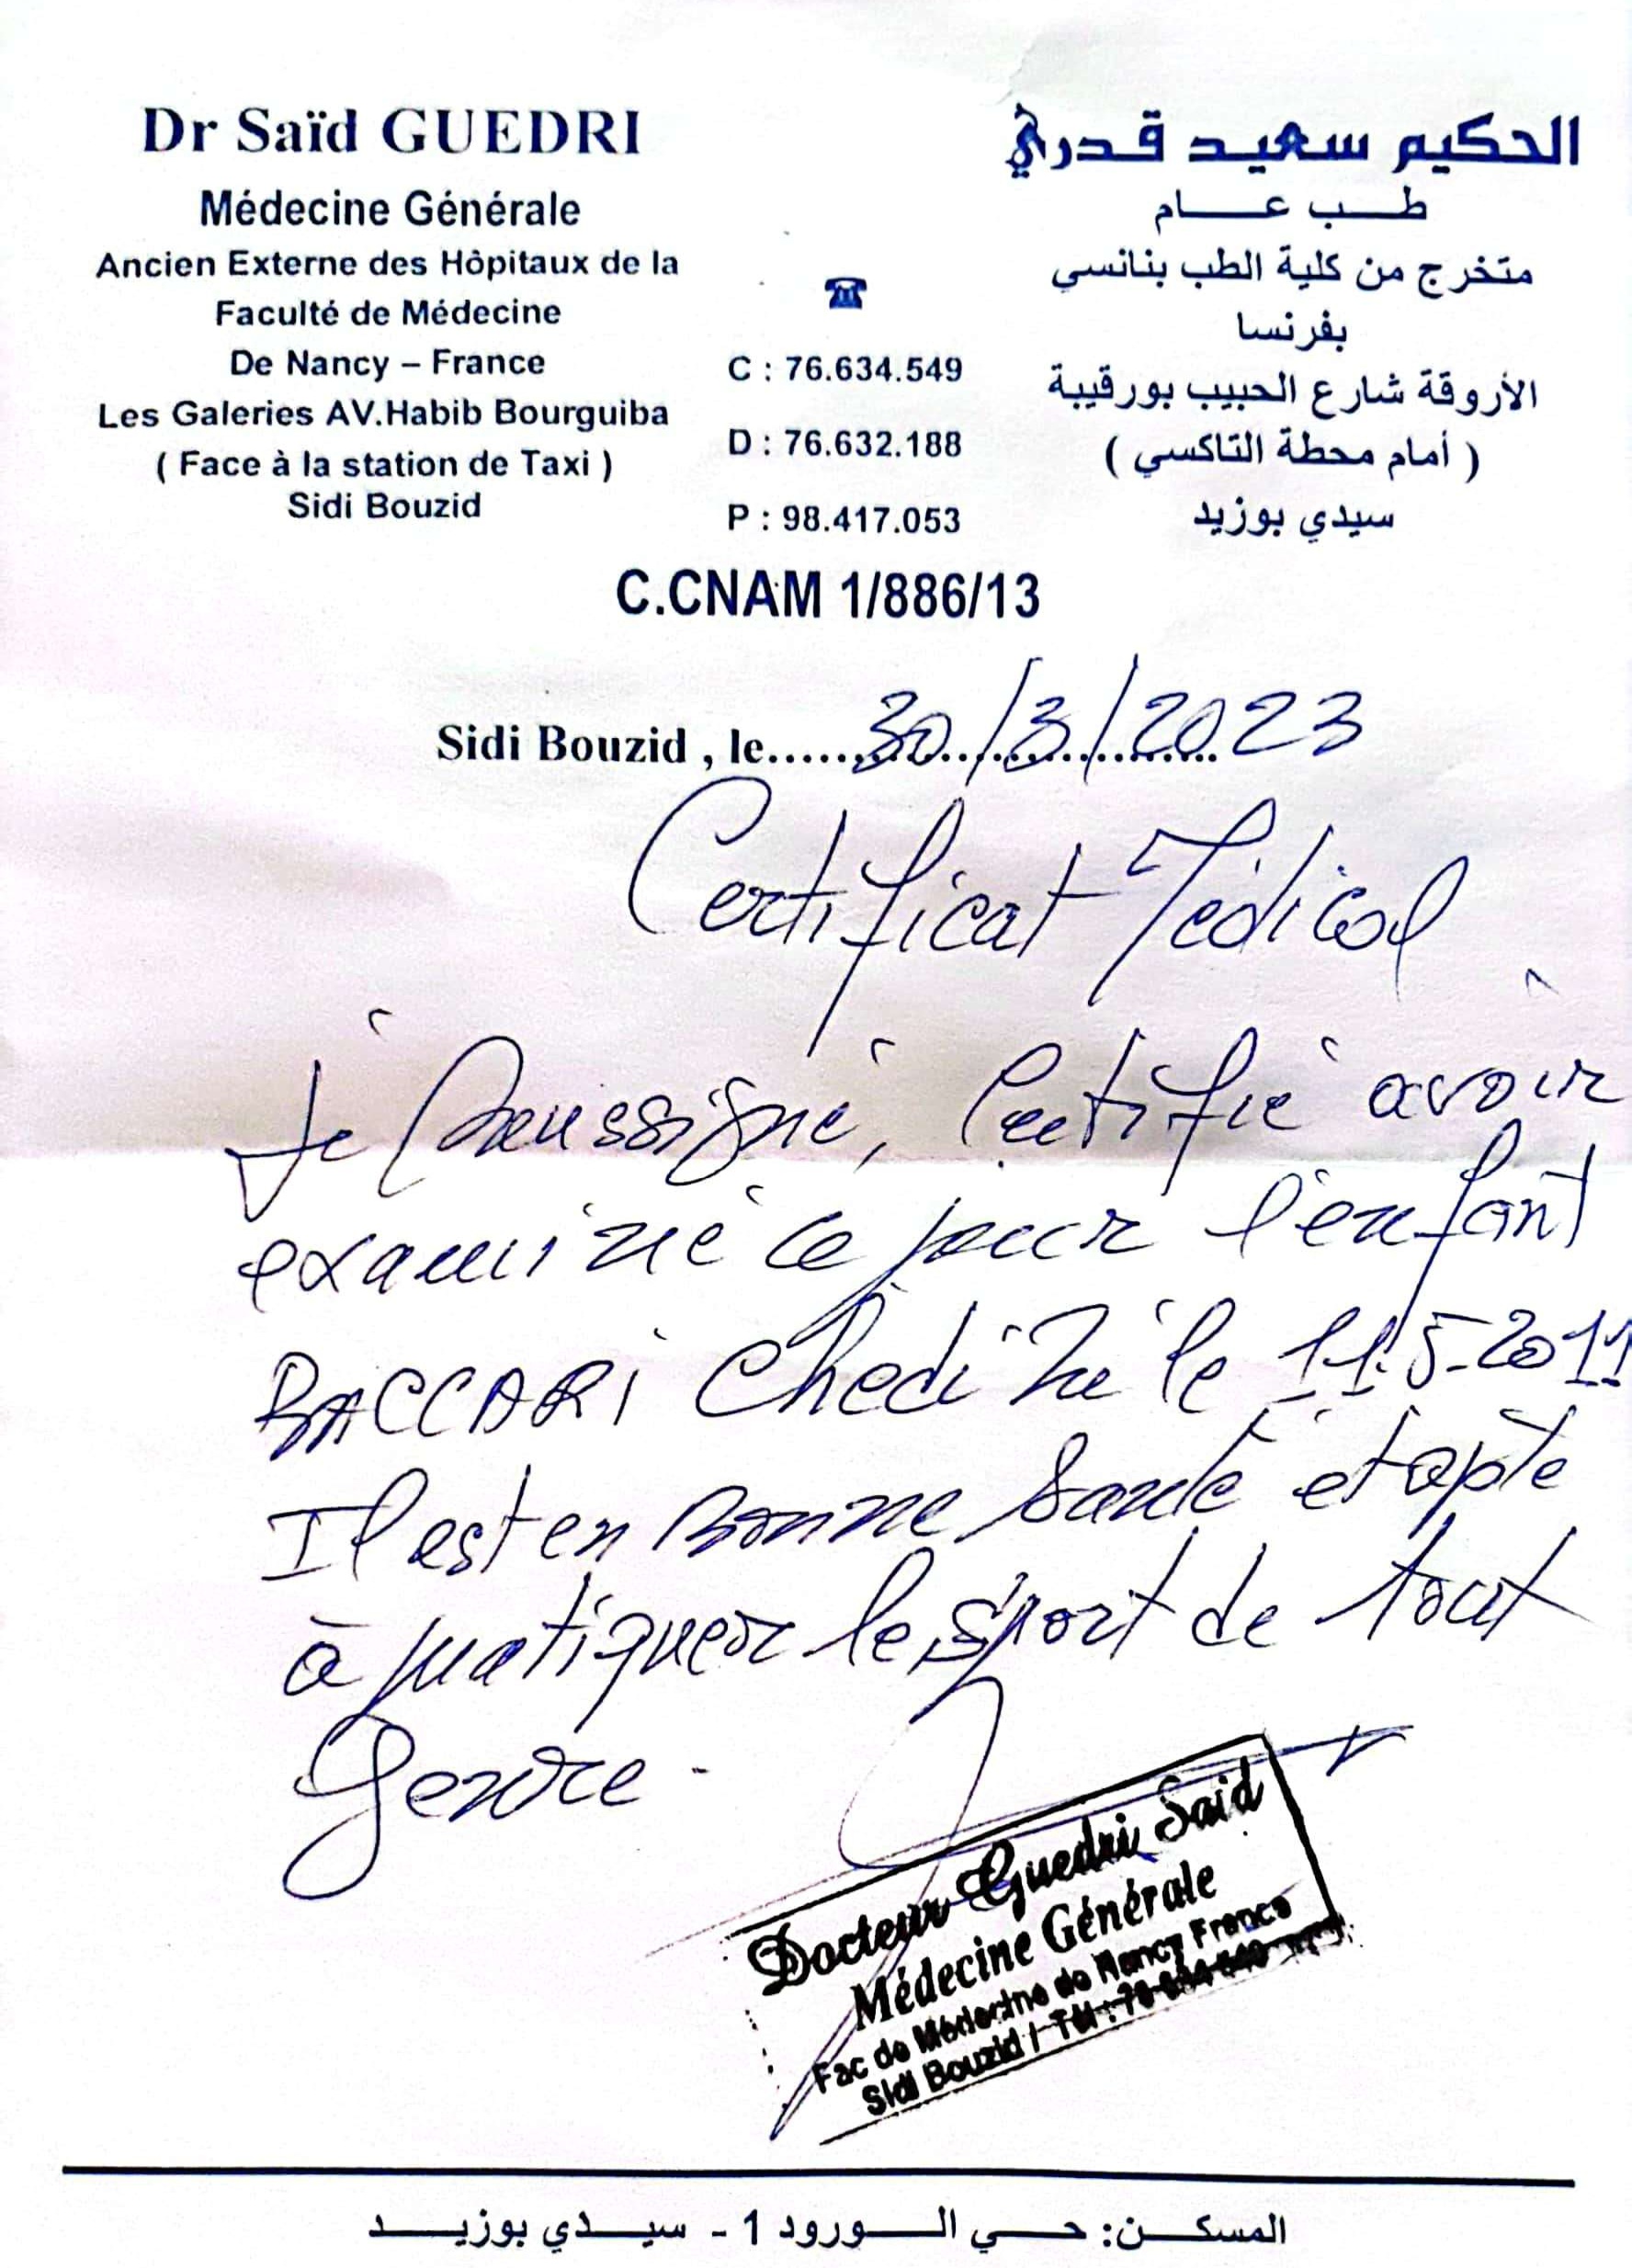 Dr Saïd GUEDRI
Médecine Générale
Ancien Externe des Hôpitaux de la
Faculté de Médecine
De Nancy – France
Les Galeries AV.Habib Bourguiba
( Face à la station de Taxi )
Sidi Bouzid
☎
C : 76.634.549
D : 76.632.188
P : 98.417.053
الحكيم سعيد قدري
طب عام
متخرج من كلية الطب بنانسي
بفرنسا
الأروقة شارع الحبيب بورقيبة
( أمام محطة التاكسي )
سيدي بوزيد
C.CNAM 1/886/13
Sidi Bouzid , le 30/3/2023
Certificat Médical
Je soussigné, Certifie avoir
examiné ce jour l'enfant
BACCARI Chedi né le 11.5.2011
Il est en bonne santé et apte
à pratiquer le sport de tout
Genre.
Docteur Guedri Said
Médecine Générale
Fac de Médecine de Nancy France
Sidi Bouzid / Tél :
المسكن: حي الورود 1 - سيدي بوزيد